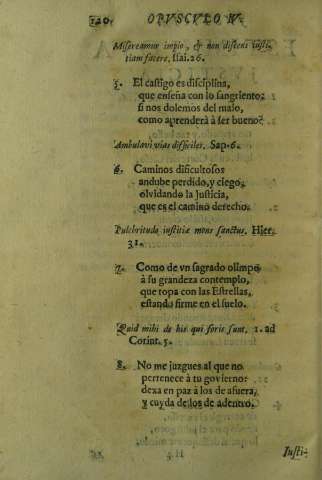 120. OPUSCULO IV.
Misereamur impio, & non discent iusti-
tiam facere, Isai.26.
5. El castigo es disciplina,
que enseña con lo sangriento:
si nos dolemos del malo,
como aprenderà à ser bueno?
Ambulavi vias difficiles. Sap.6.
6. Caminos dificultosos
andube perdido, y ciego,
olvidando la Justicia,
que es el camino derecho.
Pulchritudo iustitiæ mons sanctus. Hier.
31.
7. Como de vn sagrado olimpo
à su grandeza contemplo,
que topa con las Estrellas,
estando firme en el suelo.
Quid mihi de his qui foris sunt. 1. ad
Corint. 5.
8. No me juzgues al que no
pertenece à tu govierno:
dexa en paz à los de afuera,
y cuyda de los de adentro.
Justi-